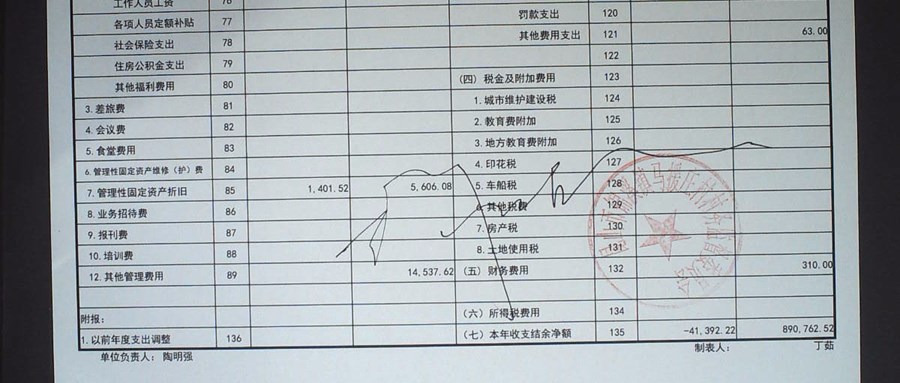 工作人员工资 76
罚款支出 120
各项人员定额补贴 77
其他费用支出 121 63.00
社会保险支出 78
122
住房公积金支出 79
(四) 税金及附加费用 123
其他福利费用 80
1.城市维护建设税 124
3.差旅费 81
2.教育费附加 125
4.会议费 82
3.地方教育费附加 126
5.食堂费用 83
4.印花税 127
6.管理性固定资产维修(护)费 84
5.车船税 128
7.管理性固定资产折旧 85 1,401.52 5,606.08
6.其他税费 129
8.业务招待费 86
7.房产税 130
9.报刊费 87
8.土地使用税 131
10.培训费 88
(五) 财务费用 132 310.00
12.其他管理费用 89 14,537.62
(六) 所得税费用 134
附报:
(七) 本年收支结余净额 135 -41,392.22 890,762.52
1.以前年度支出调整 136
单位负责人: 陶明强 制表人: 丁茹